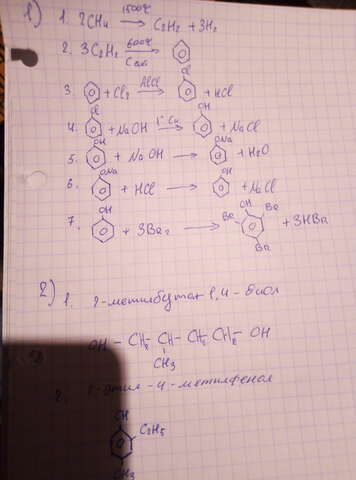 1) 1. 2CH4 1500°C → C2H2 + 3H2
2. 3C2H2 600°C Cакт →
3. + Cl2 AlCl3 → Cl + HCl
4. Cl + NaOH t° Cu → OH + NaCl
5. OH + NaOH → ONa + H2O
6. ONa + HCl → OH + NaCl
7. OH + 3Br2 → OH Br Br Br + 3HBr
2) 1. 2-метилбутан 1,4-диол
OH - CH2 - CH - CH2 CH2 - OH
CH3
2. 2-этил-4-метилфенол
OH
C2H5
CH3